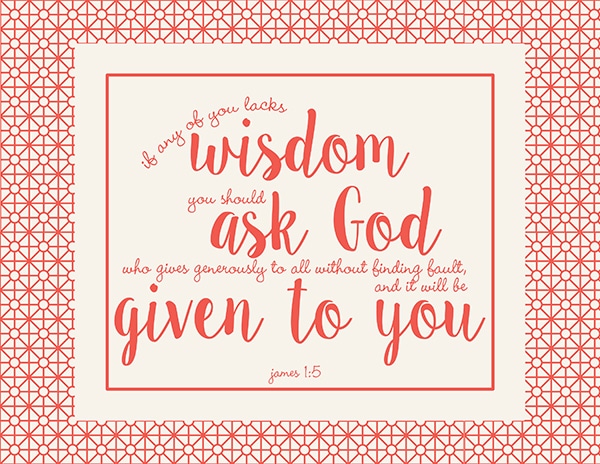 if any of you lacks
wisdom
you should
ask God
who gives generously to all without finding fault,
and it will be
given to you
james 1:5